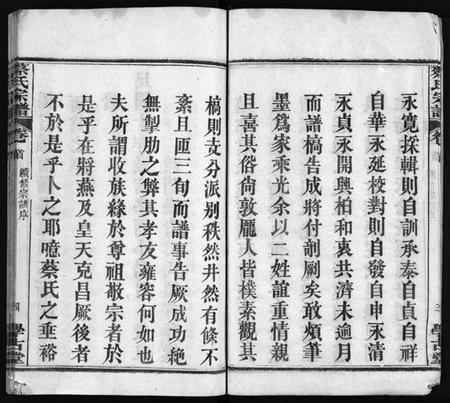 蔡氏宗譜
卷首
三
學古堂
永寬採輯則自訓承泰自貞自祥
自永延校對則自發自申永清
永貞永開興柏和衷共濟未逾月
而譜稿告成將付剞劂矣敢煩筆
墨爲家乘光余以二姓誼重情親
且喜其俗尚敦龐人皆樸素觀其
稿則支分派别秩然井然有條不
紊且匝三旬而譜事告厥成功絶
無掣肘之弊其孝友雍容何如也
夫所謂收族緣於尊祖敬宗者於
是乎在將燕及皇天克昌厥後者
不於是乎卜之耶噫蔡氏之垂裕
蔡氏宗譜
卷首
續修宗譜序
四
學古堂